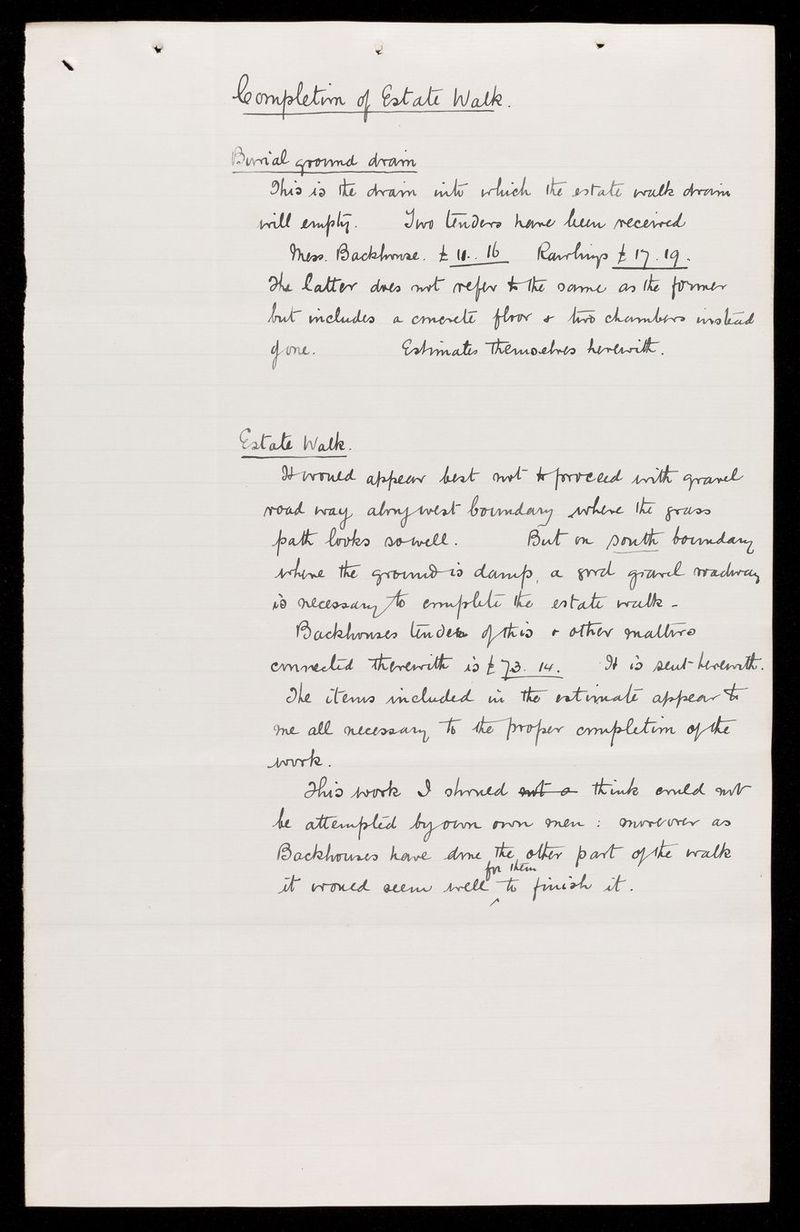 Completion of Estate Walk.
Burial ground drain
This is the drain into which the estate walk drain
will empty. Two tenders have been received
Mess. Backhouse. £ 11. 16 Rawlings £ 17. 19.
The latter does not refer to the same as the former
but includes a concrete floor & two chambers instead
of one. Estimates themselves herewith.
Estate Walk.
It would appear best not to proceed with gravel
road way along west boundary where the grass
path looks so well. But on south boundary
where the ground is damp, a good gravel roadway
is necessary to complete the estate walk -
Backhouses tender of this & other matters
connected therewith is £ 73. 14. It is sent herewith.
The items included in the estimate appear to
me all necessary to the proper completion of the
work.
This work I should not a think could not
be attempted by our own men : moreover as
Backhouses have done the other part of the walk
for them
it would seem well to finish it.